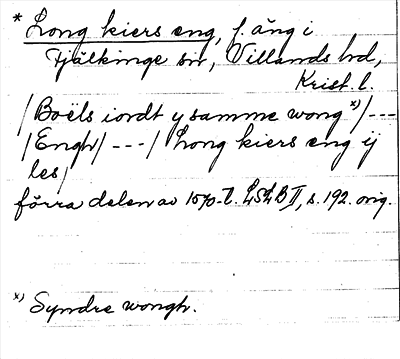 * Long kiers eng, f. äng i
Fjälkinge sn, Villands hd,
Krist. l.
/Boëls iordt y samme wong x)/---
/Engh/ ---/ Long kiers eng ij
les/
förra delen av 1570-t. LSLB II, s. 192. orig.
x) Syndre wongh.